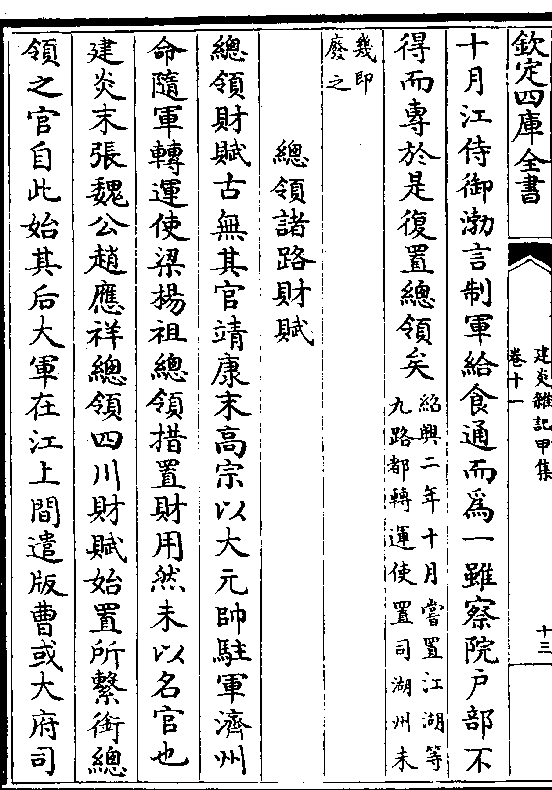 欽定四庫全書
建炎雜記甲集
卷十一
十三
十月江侍御渤言制軍給食通而爲一雖察院戶部不
得而專於是復置總領矣
紹興二年十月嘗置江湖等
九路都轉運使置司湖州未
幾卽
廢之
總領諸路財賦
總領財賦古無其官靖康末高宗以大元帥駐軍濟州
命隨軍轉運使梁楊祖總領措置財用然未以名官也
建炎末張魏公趙應祥總領四川財賦始置所繫銜總
領之官自此始其后大軍在江上間遣版曹或大府司